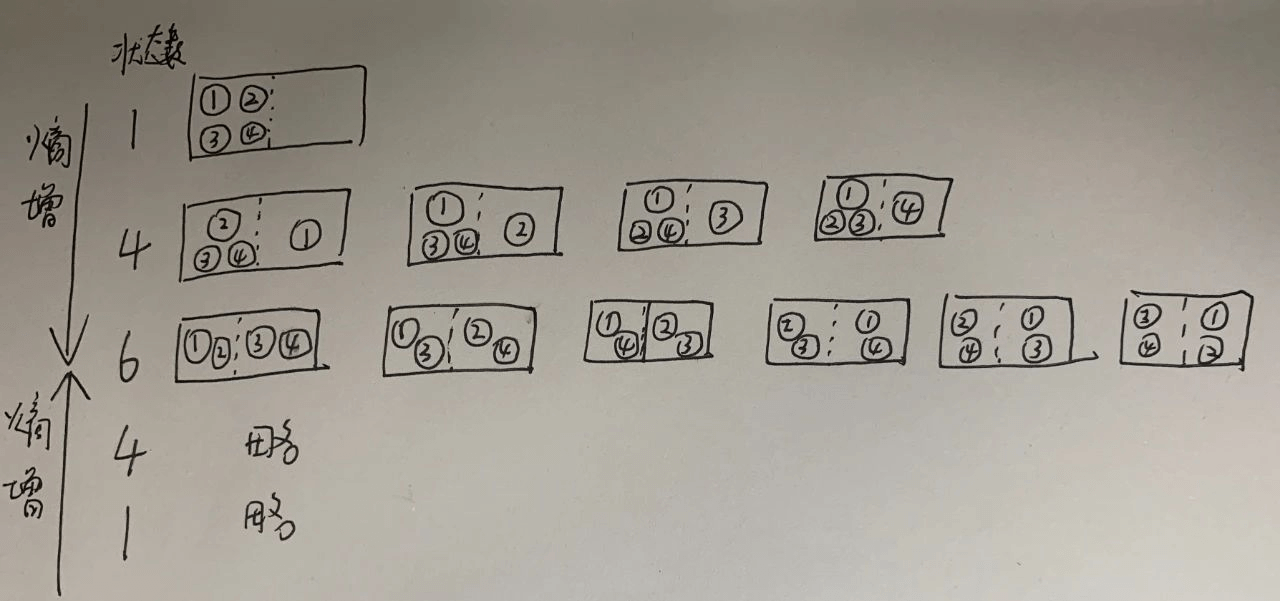 状态数
熵增
1 ① ② ③ ④
4 ② ③ ④ ① ① ③ ④ ② ① ② ④ ③ ① ② ③ ④
6 ① ② ③ ④ ① ③ ② ④ ① ④ ② ③ ② ③ ① ④ ② ④ ① ③ ③ ④ ① ②
熵增
4 略
1 略